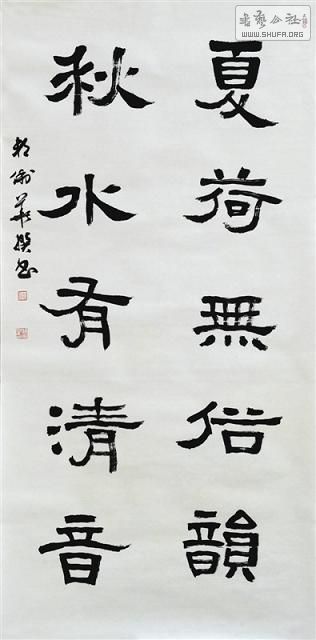 夏荷無俗韻
秋水有清音
書藝公社
WWW.SHUFA.ORG